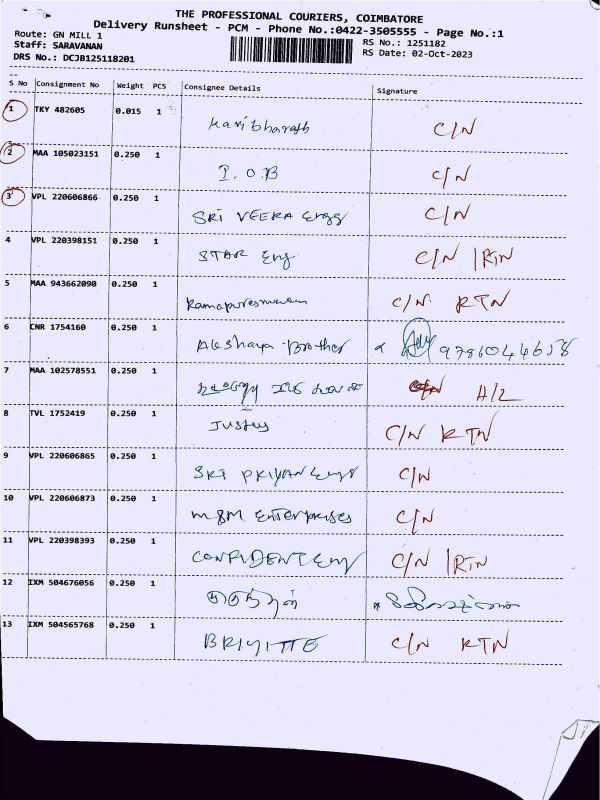 THE PROFESSIONAL COURIERS, COIMBATORE
Delivery Runsheet - PCM - Phone No.:0422-3505555 - Page No.:1
Route: GN MILL 1
Staff: SARAVANAN
DRS No.: DCJB125118201
RS No.: 1251182
RS Date: 02-Oct-2023
S No Consignment No Weight PCS Consignee Details Signature
1 TKY 482605 0.015 1 Haribharath C/N
2 MAA 105023151 0.250 1 I.O.B C/N
3 VPL 220606866 0.250 1 SRI VEERA Engg C/N
4 VPL 220398151 0.250 1 STAR Eng C/N /RTN
5 MAA 943662090 0.250 1 C/N. RTN
6 CNR 1754160 0.250 1 Akshaya Brother
7 MAA 102578551 0.250 1 H/L
8 TVL 1752419 0.250 1 C/N RTN
9 VPL 220606865 0.250 1 SRI PRIYAN Engg C/N
10 VPL 220606873 0.250 1 M&M Enterprises C/N
11 VPL 220398393 0.250 1 CONFIDENT Eng C/N /RTN
12 IXM 504676056 0.250 1
13 IXM 504565768 0.250 1 BRIYITTE C/N RTN